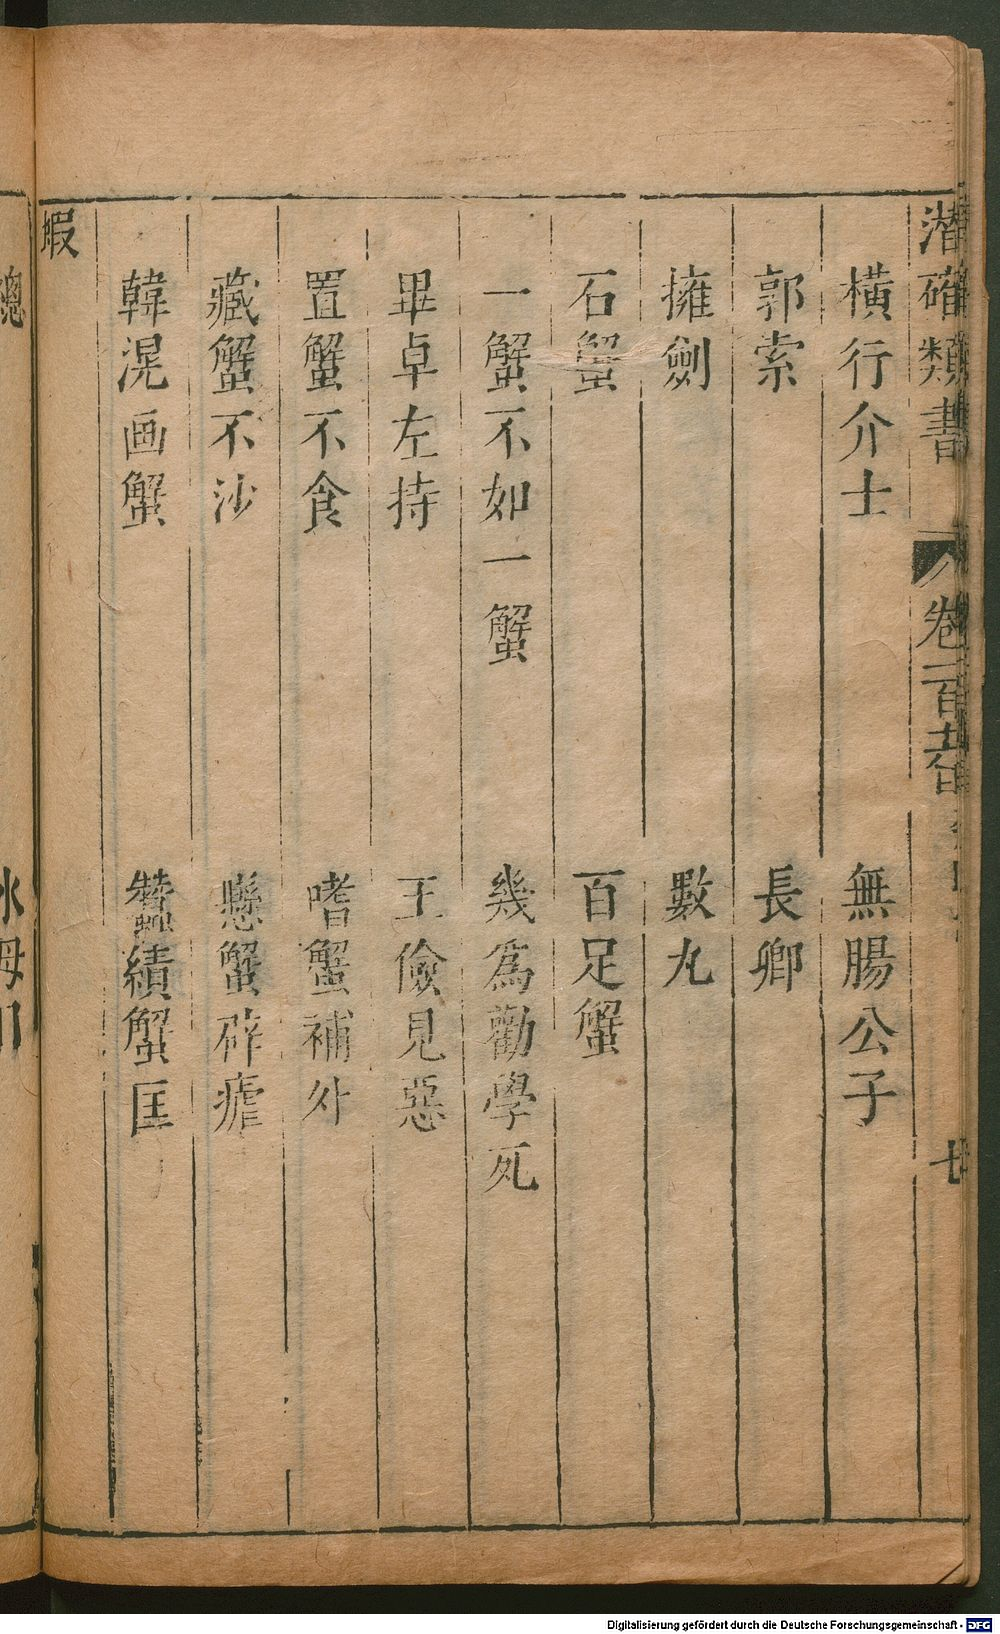 潛確類書 卷一百
橫行介士 無腸公子
郭索 長卿
擁劍 數丸
石蟹 百足蟹
一蟹不如一蟹 幾爲勸學死
畢卓左持 王儉見惡
置蟹不食 嗜蟹補外
藏蟹不沙 懸蟹辟瘧
韓滉画蟹 蠶績蟹匡
蝦
總 水母
Digitalisierung gefördert durch die Deutsche Forschungsgemeinschaft - DFG